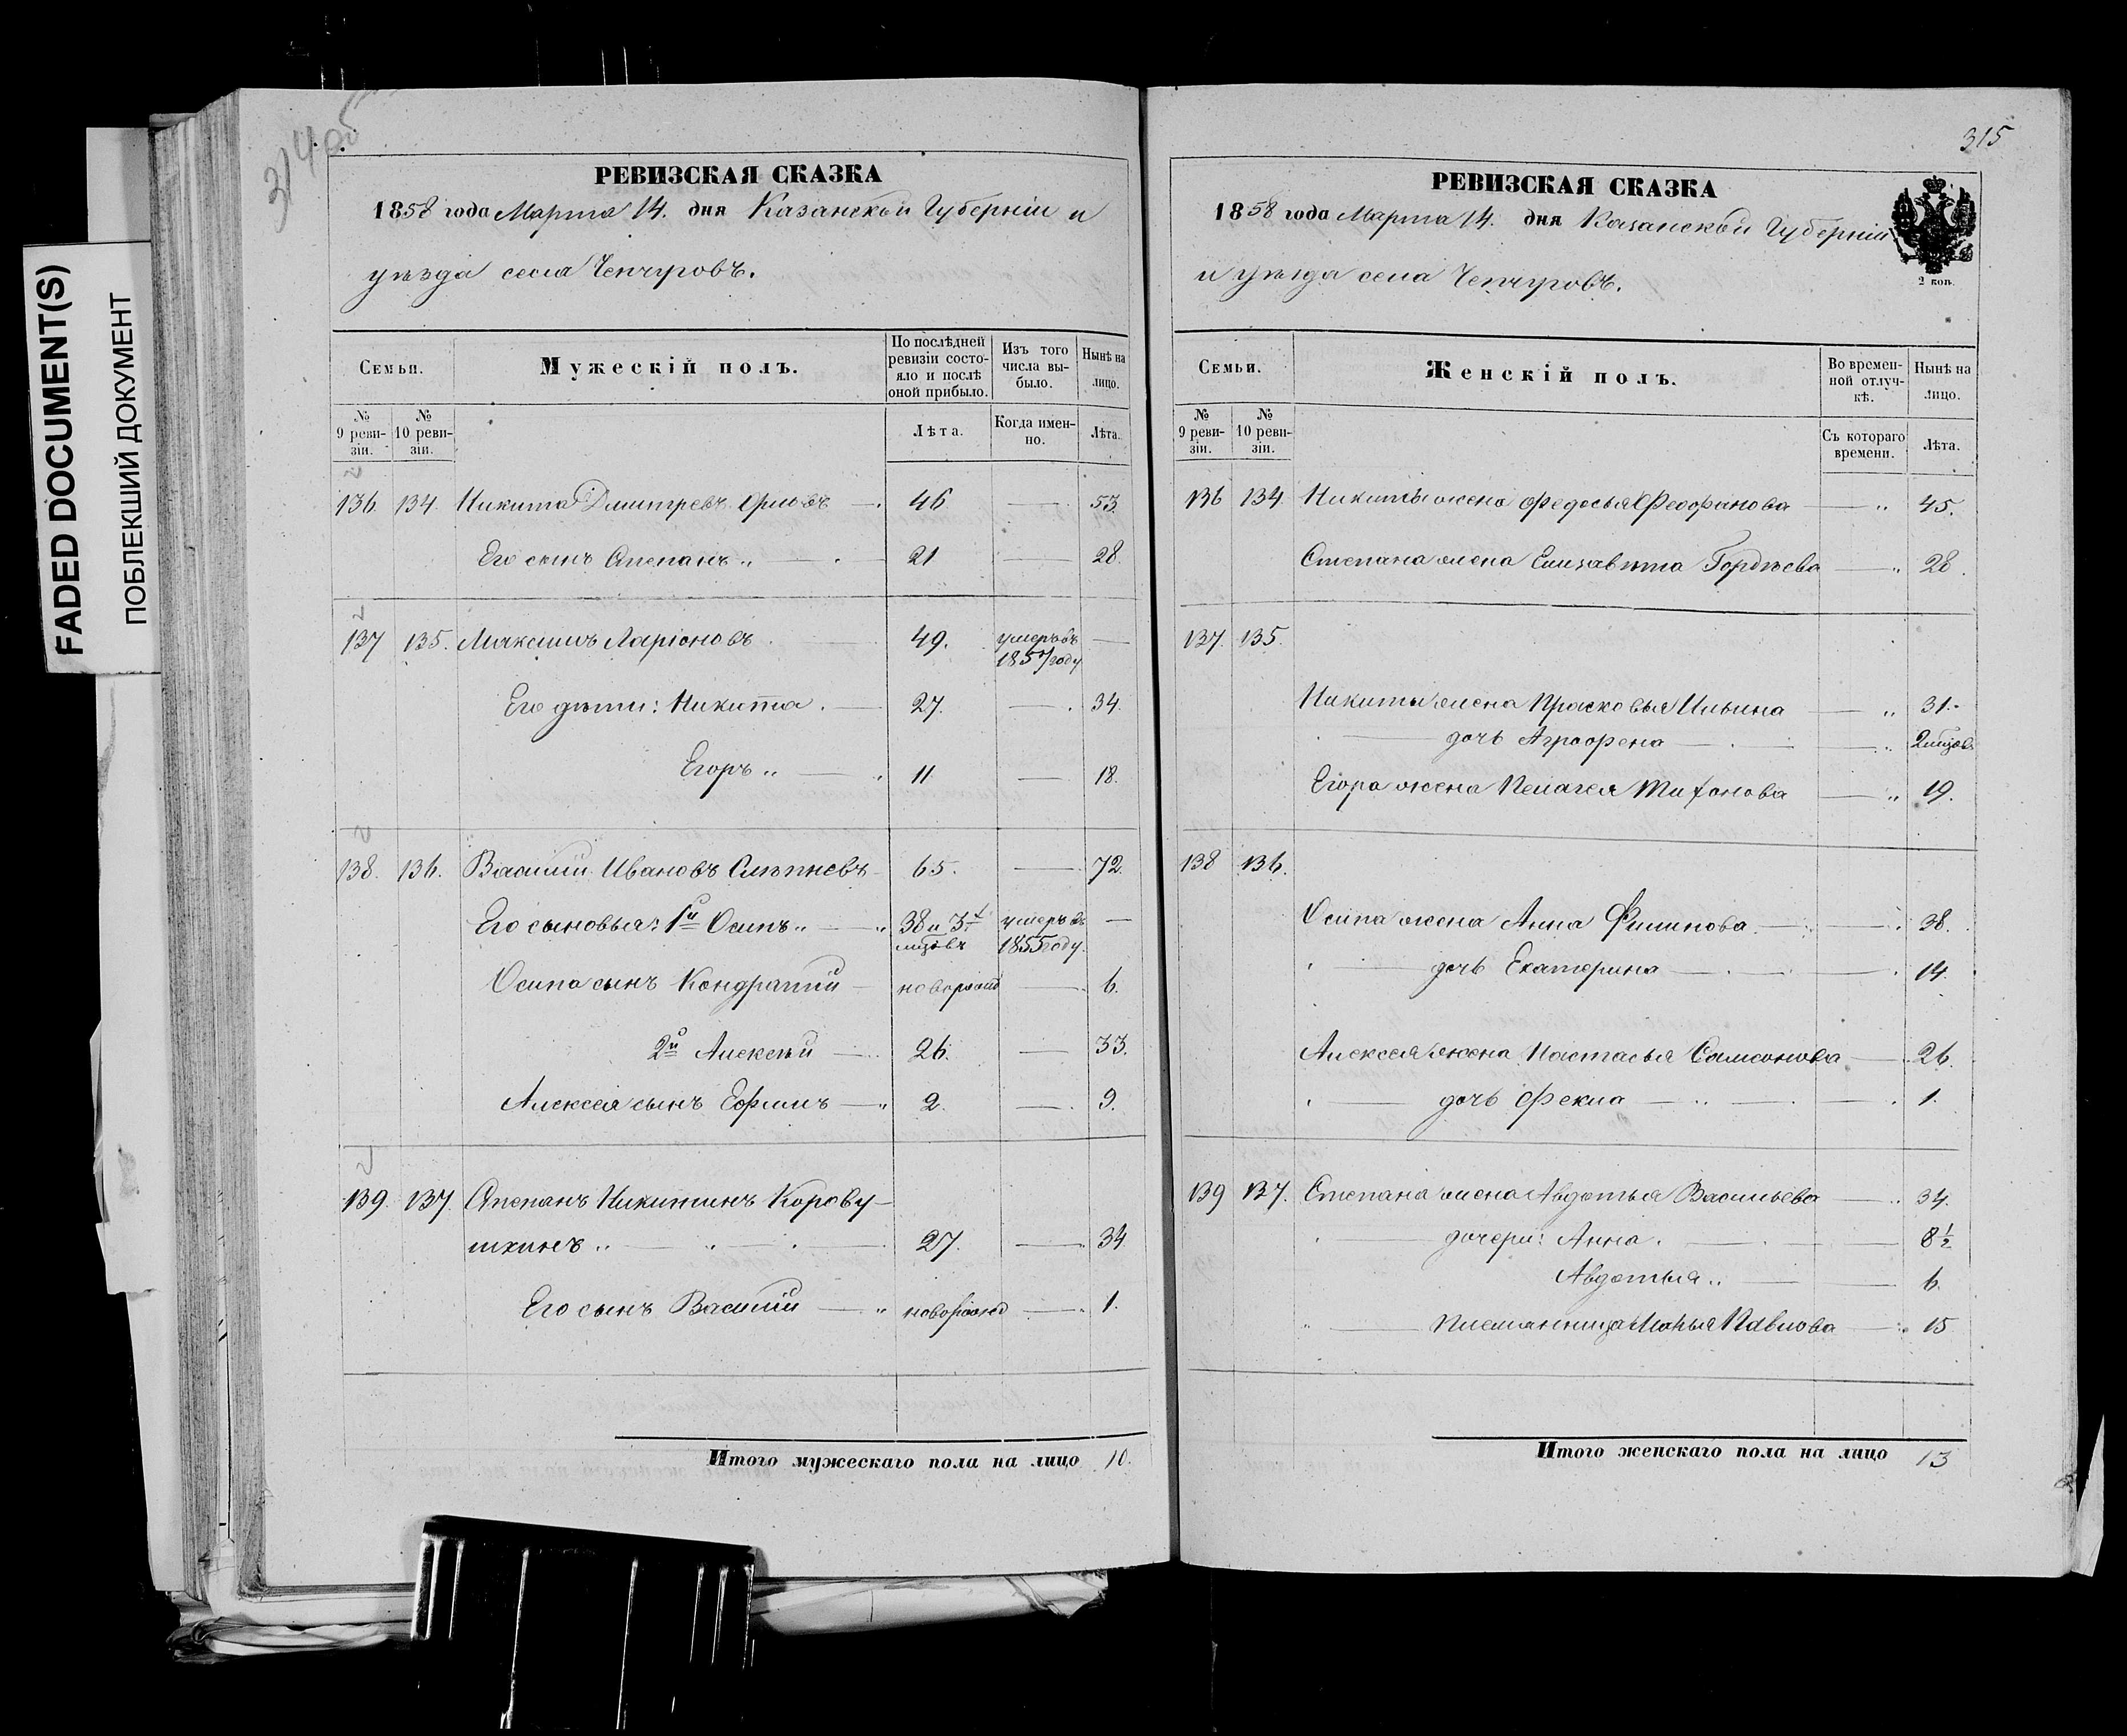 FADED DOCUMENT(S)
ПОБЛЕКШИЙ ДОКУМЕНТ
314 об
РЕВИЗСКАЯ СКАЗКА
1858 года Марта 14. дня Казанской Губернiи и
уѣзда села Чепчуровъ.
Семьи. Мужескiй полъ. По послѣдней ревизiи состояло и послѣ оной прибыло. Изъ того числа выбыло. Нынѣ на лицо.
№ 9 ревизiи. № 10 ревизiи. Лѣта. Когда именно. Лѣта.
136. 134. Никита Дмитревъ Орловъ 46 53.
Его сынъ Степанъ 21 28.
137 135. Максимъ Ларiоновъ 49. умеръ въ 1857 году
Его дѣти: Никита. 27. 34.
Егоръ 11 18.
138. 136. Василiй Ивановъ Слѣпневъ 65. 72.
Его сыновья: 1й Осипъ 38 и 3х мѣсяцовъ умеръ въ 1855 году.
Осипа сынъ Кондратiй новорожд 6.
2й Алексѣй 26. 33.
Алексея сынъ Ефимъ 2. 9.
139. 137. Степанъ Никитинъ Корову-
шкинъ 27. 34
Его сынъ Василiй новорожд 1.
Итого мужескаго пола на лицо 10.
315
РЕВИЗСКАЯ СКАЗКА
1858 года Марта 14. дня Казанской Губернiи
и уѣзда села Чепчуровъ.
2 коп.
Семьи. Женскiй полъ. Во временной отлучкѣ. Нынѣ на лицо.
№ 9 ревизiи. № 10 ревизiи. Съ котораго времени. Лѣта.
136 134. Никиты жена Федосья Феофанова 45.
Степана жена Елизавѣта Гордѣева 28.
137. 135.
Никиты жена Прасковья Ильина 31.
дочь Аграфена 2 мѣсяцовъ
Егора жена Пелагея Тихонова 19.
138 136.
Осипа жена Анна Филипова 38.
дочь Екатерина 14.
Алексея жена Настасья Самсонова 26.
дочь Фекла 1.
139 137. Степана жена Авдотья Васильева 34.
дочери: Анна. 8 1/2
Авдотья 6.
племянница Марья Павлова 15
Итого женскаго пола на лицо 13